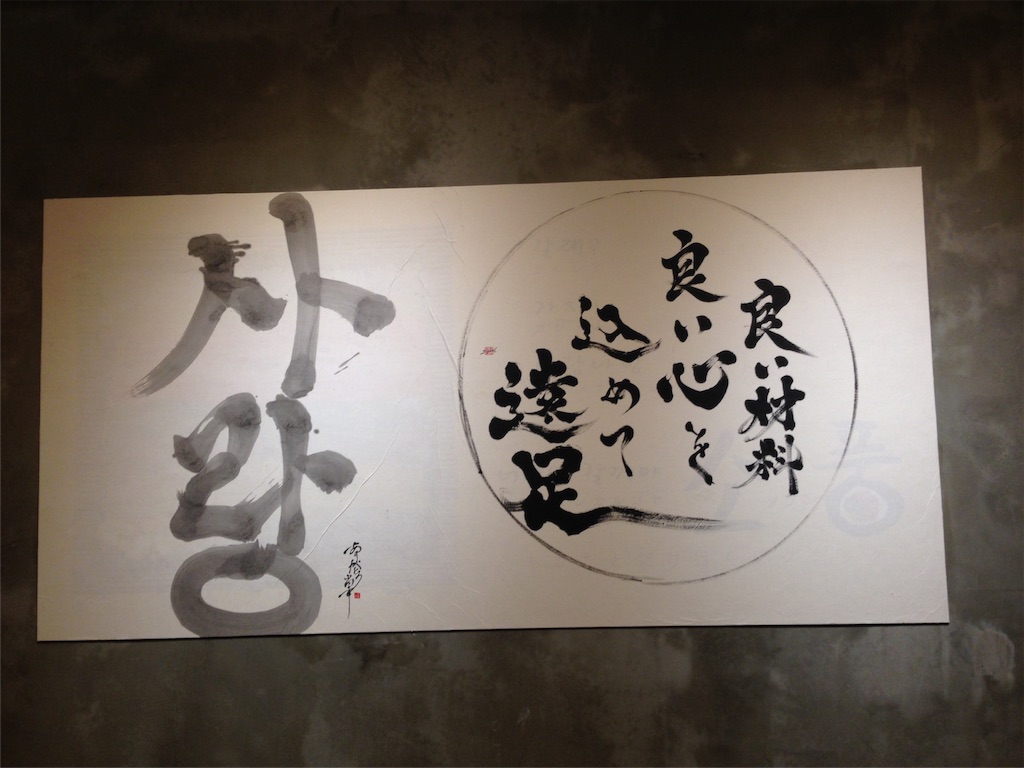 사랑
良い材料
良い心を
込めて
遠足